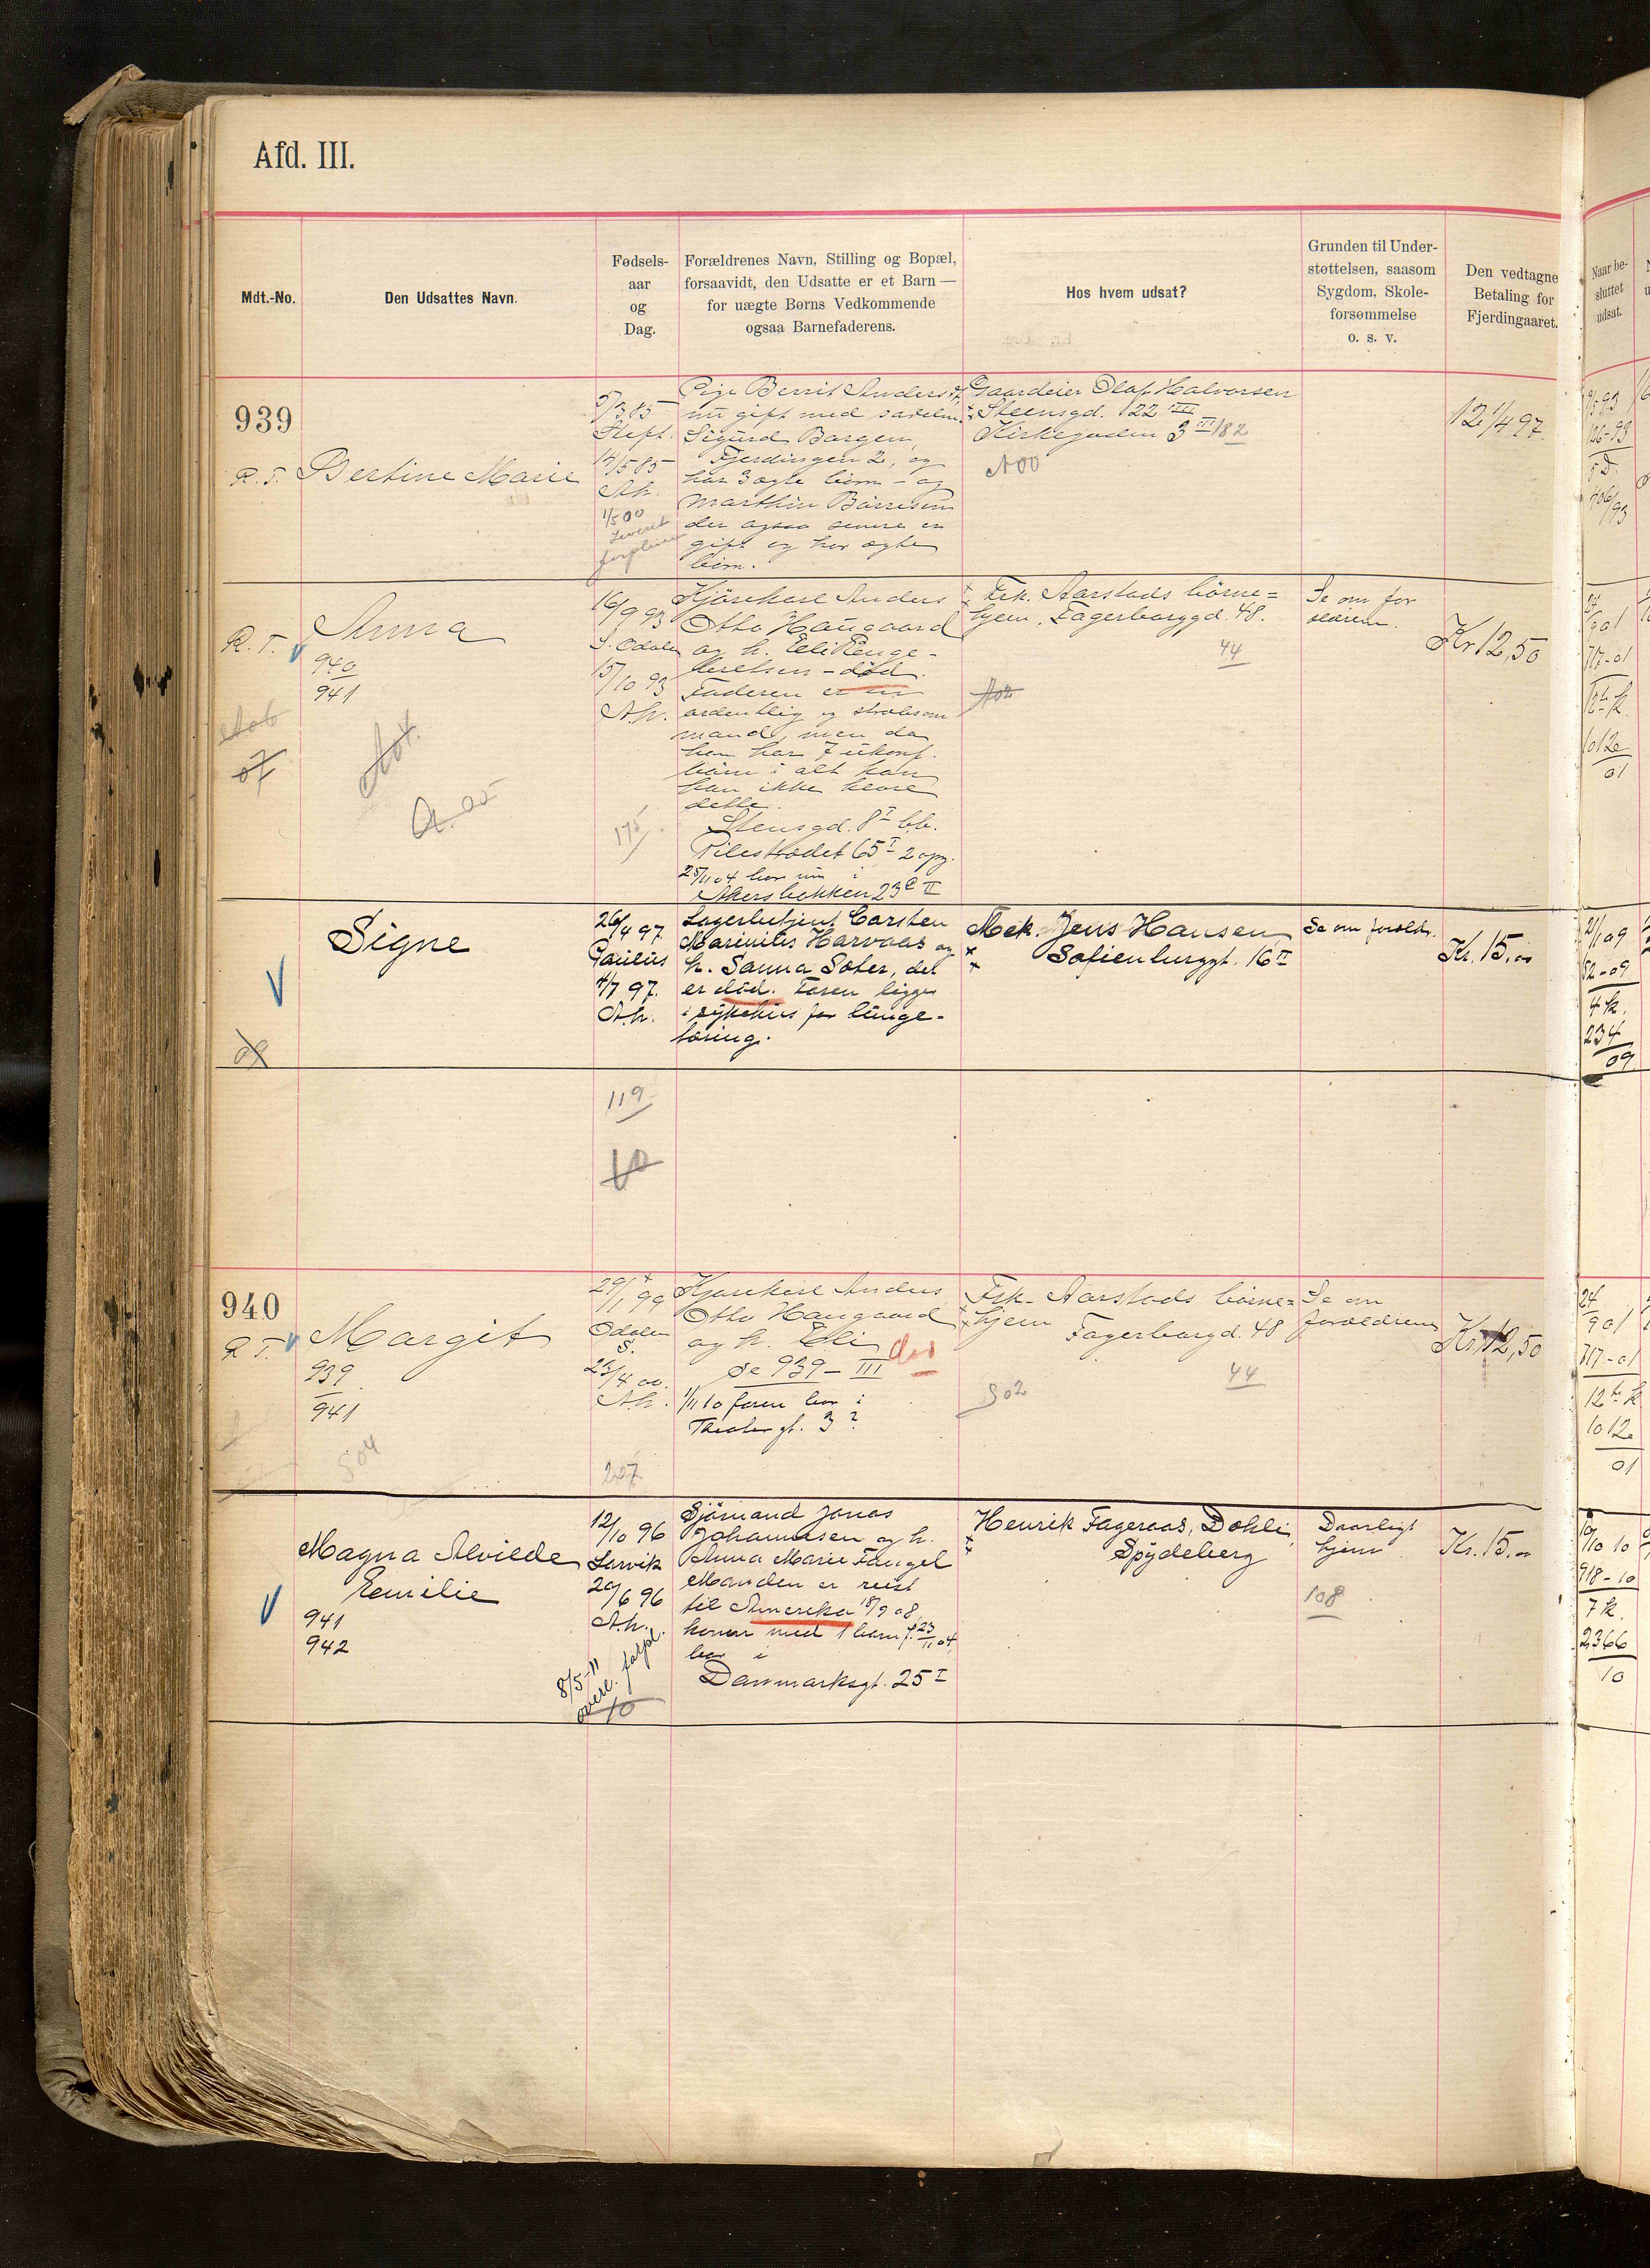 Afd. III.
Mdt.-No.
Den Udsattes Navn.
Fødsels-
aar
og
Dag.
Forældrenes Navn, Stilling og Bopæl,
forsaavidt, den Udsatte er et Barn —
for uægte Børns Vedkommende
ogsaa Barnefaderens.
Hos hvem udsat?
Grunden til Under-
støttelsen, saasom
Sygdom, Skole-
forsømmelse
o. s. v.
Den vedtagne
Betaling for
Fjerdingaaret.
Naar be-
sluttet
udsat.
939
R. T. Bertine Marie
5/3 85
14/5 85
Ah.
1/5 00
Pige Berrit Anders
nu gift med
Sigurd Borgen,
Fjerdingen 2, og
har 3 ægte børn – og
Marthin Børresen
der ogsaa senere er
gift og har ægte
børn.
Gaardeier Olaf Halvorsen
Steensgd. 22 III
Kirkegaden 3 III/82
A00
12 1/4 97.
R. T. Anna
940
941
07
A. 05
16/9 93
S. Odalen
15/10 93
A.h.
175
Kjørekarl Anders
Otto Haugaard
og h. Eli
død.
Faderen er en
ordentlig og stræbsom
mand, men da
han har 7 ukonf.
børn i alt kan
han ikke klare
dette.
Stensgd. 8 I
Pilestrædet 65 I 2 opg.
25/11 04 bor nu i
Akersbakken 23 c II
Frk. Aarstads børne=
hjem, Fagerborggd. 48.
44
Se om for
ældrene.
Kr 12,50
Signe
09
26/4 97.
Paulus
4/7 97.
A.h.
119
10
Lagerbetjent Carsten
Marinius Harvaas og
h. Sanna Soter, det
er død. Faren ligger
i sykehus for lunge-
tæring.
Mek. Jens Hansen
Sofienberggt. 16 II
Se om foreldr.
Kr. 15.00
21/1 09
52-09
4 k.
234
09
940
R T. Margit
939
941
504
29/1 99
Odalen
S.
23/4 00.
A.h.
247
Kjørekarl Anders
Otto Haugaard
og h. Eli død
Se 939 – III
1/11 10 faren bor i
Theatergt. 3?
Frk. Aarstads børne=
hjem Fagerborgd. 48
44
S02
Se om
forældrene
Kr 12,50
24/9 01
717-01
12te k
1012
01
Magna Alvilde
Emilie
941
942
12/10 96
Larvik
20/6 96
A.h.
8/5-11
overl. forpl.
10
Sjömand Jonas
Johannesen og h.
Anna Marie Fangel
Manden er reist
til Amerika 18/9 08,
konen med 1 barn f. 23/11 04,
bor i
Danmarksgt. 25 I
Henrik Fageraas, Dohli,
Spydeberg
Daarligt
hjem
108
Kr. 15.00
10/10 10
918-10
7 k.
2366
10